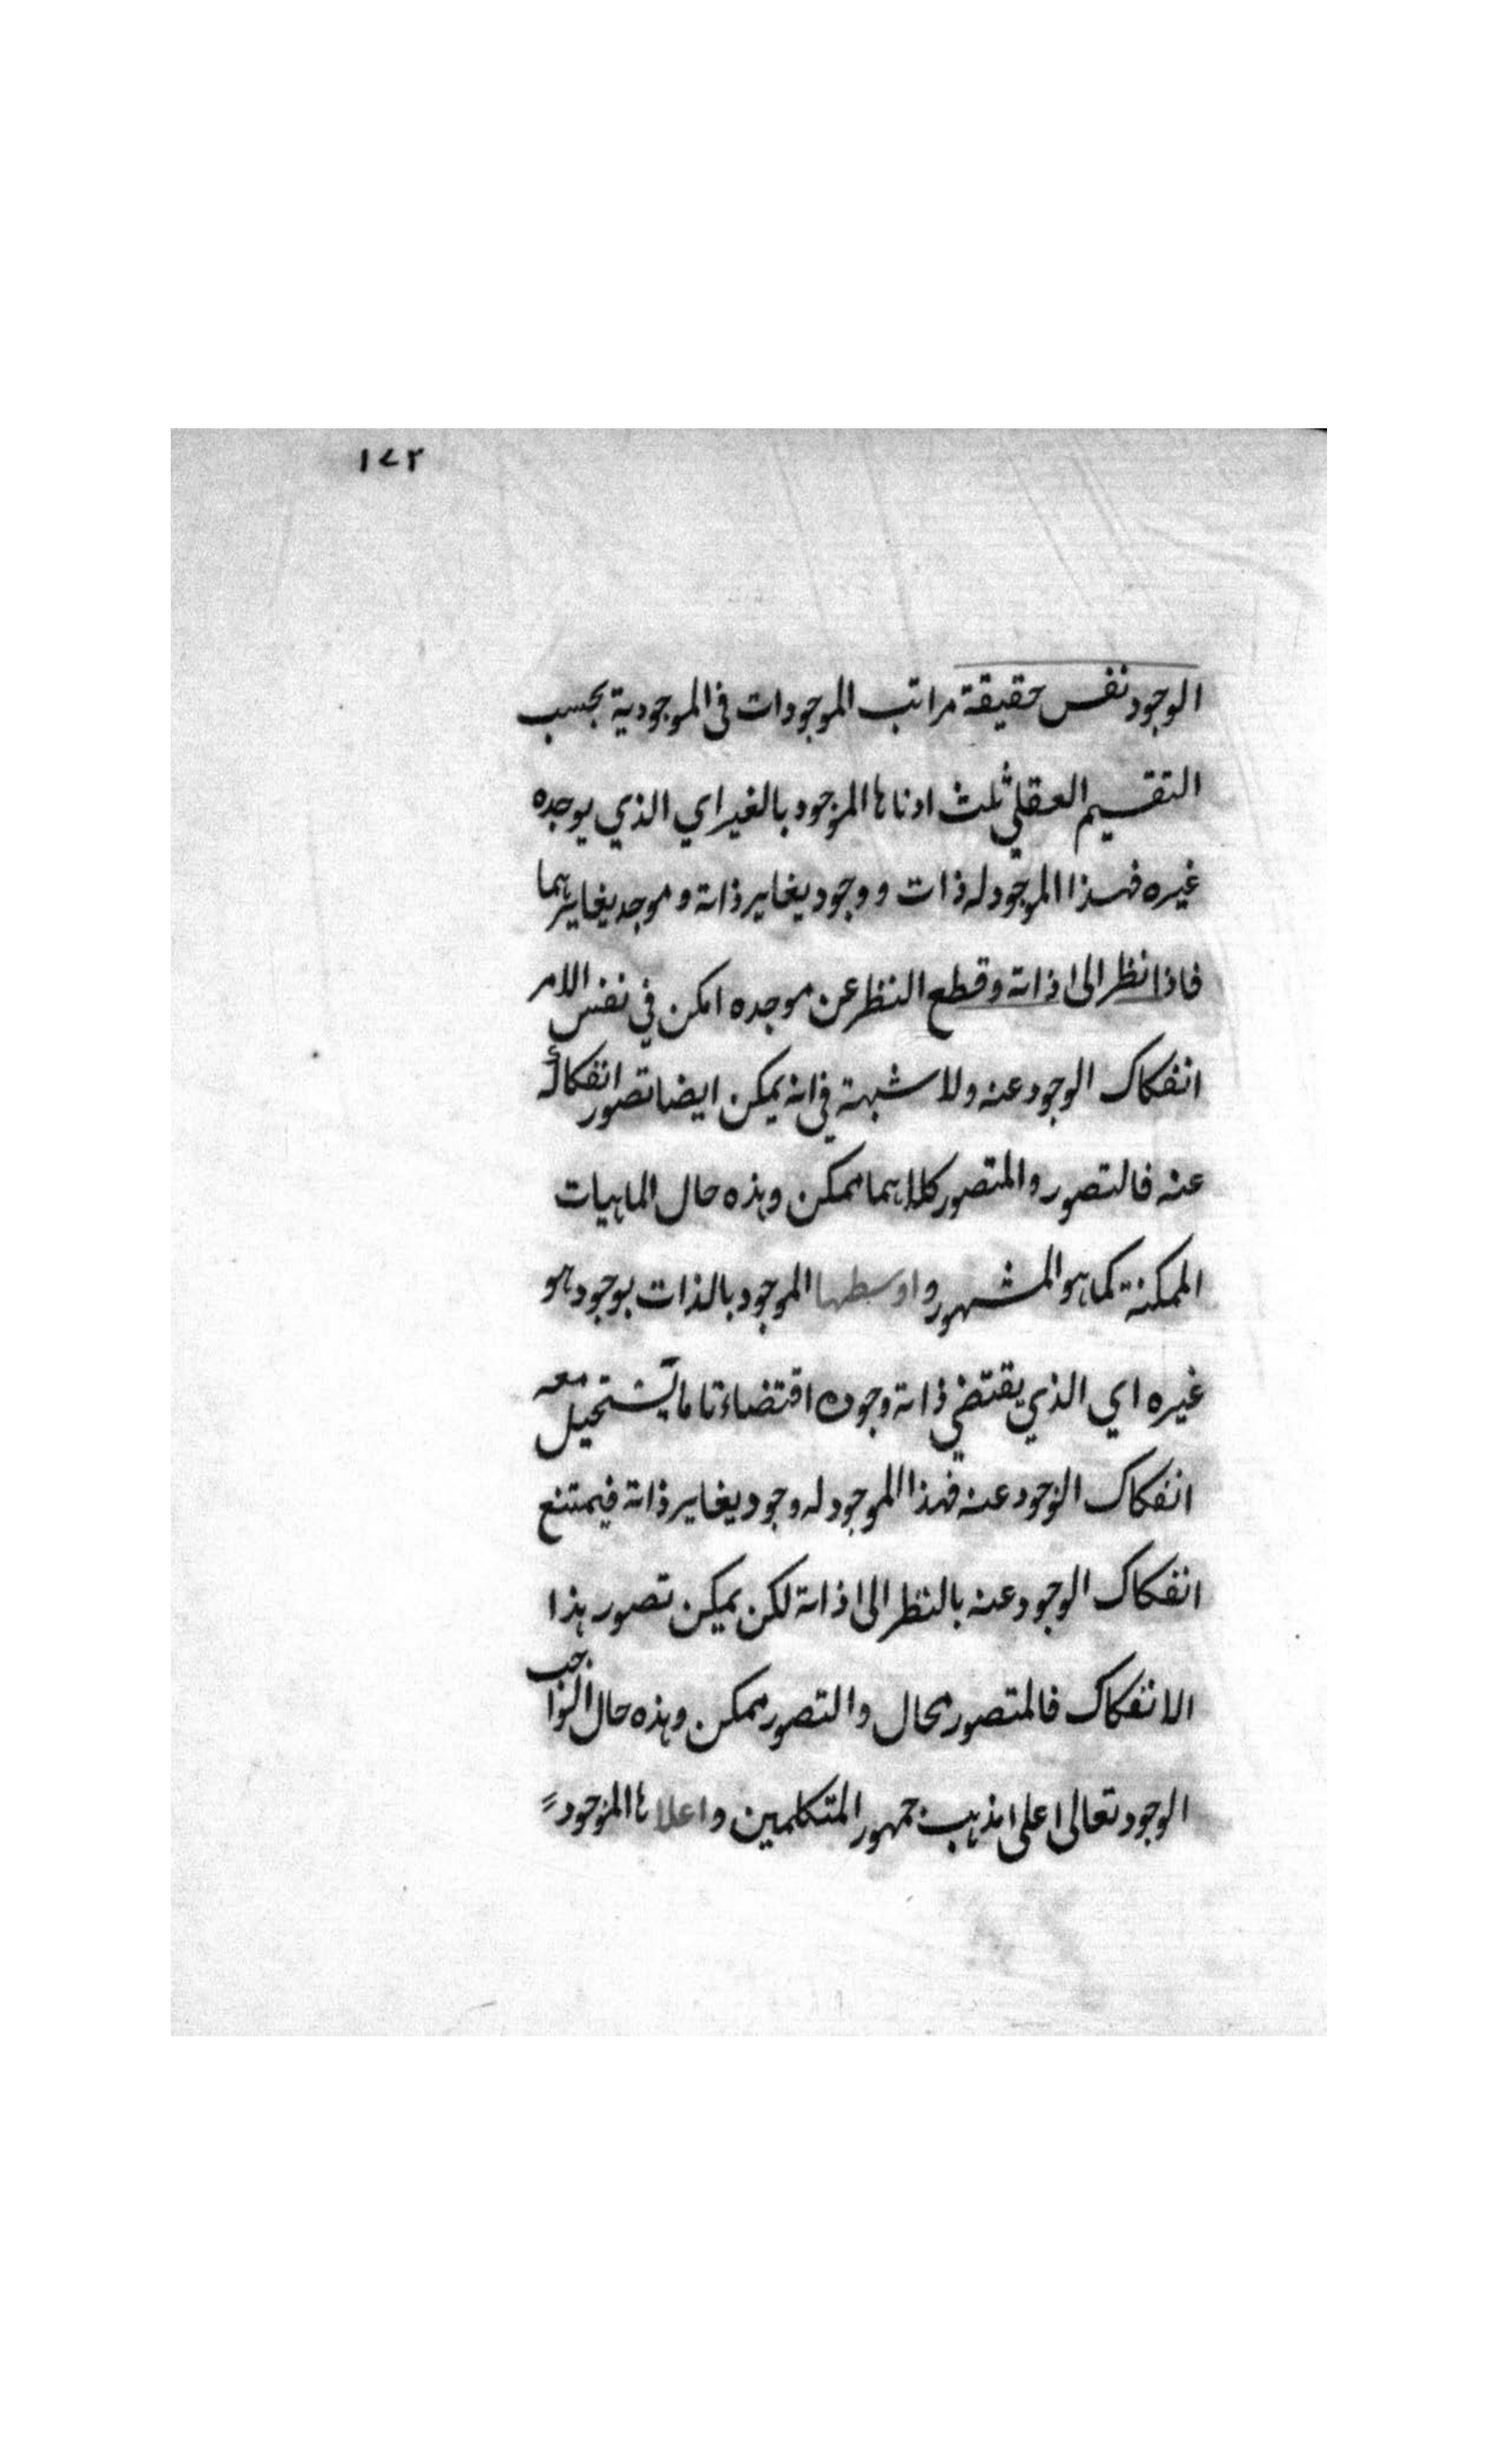 ١٧٢
الوجود نفس حقيقة مراتب الموجودات فى الموجودية بحسب
التقسيم العقلي ثلث ادناها الموجود بالغير اي الذي يوجده
غيره فهذا الموجود له ذات ووجود يغاير ذاته وموجد يغايرهما
فاذا نظر الى ذاته وقطع النظر عن موجده امكن في نفس الامر
انفكاك الوجود عنه ولا شبهة في انه يمكن ايضا تصور انفكاكه
عنه فالتصور والمتصور كلاهما ممكن وهذه حال الماهيات
الممكنة كما هو المشهور واوسطها الموجود بالذات بوجود هو
غيره اي الذي يقتضي ذاته وجوده اقتضاء تاما يستحيل معه
انفكاك الوجود عنه فهذا الموجود له وجود يغاير ذاته فيمتنع
انفكاك الوجود عنه بالنظر الى ذاته لكن يمكن تصور هذا
الانفكاك فالمتصور محال والتصور ممكن وهذه حال الواجب
الوجود تعالى على مذهب جمهور المتكلمين واعلاها الموجود